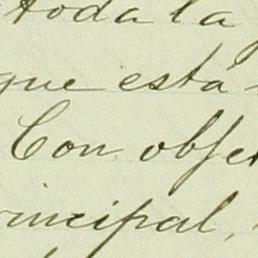 toda la
que está
Con obje
rincipal,